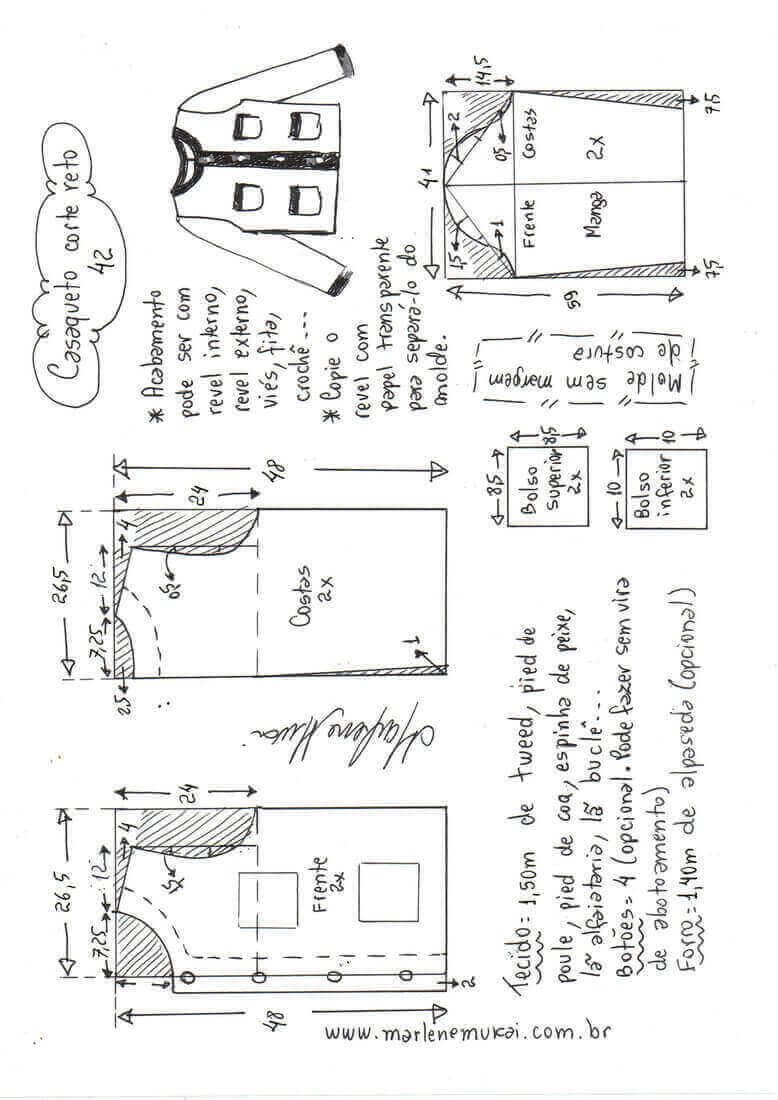 Casaqueto corte reto
42
* Acabamento
pode ser com
revel interno,
revel externo,
viés, fita,
crochê...
* Copie o
revel com
papel transparente
para separá-lo do
molde.
41
14,5
2
0,5
1,5
1
Frente
Costas
Manga
2x
59
7,5
7,5
Molde sem margem
de costura
26,5
7,25
12
4
2,5
24
48
0,5
Costas
2x
1
8,5
8,5
Bolso
superior
2x
10
10
Bolso
inferior
2x
26,5
7,25
12
4
24
48
1,5
Frente
2x
2
Tecido = 1,50m de tweed, pied de
poule, pied de coq, espinha de peixe,
lã alfaiataria, lã buclê...
Botões = 4 (opcional. Pode fazer sem vira
de abotoamento)
Forro = 1,40m de alpaseda (opcional)
www.marlenemukai.com.br